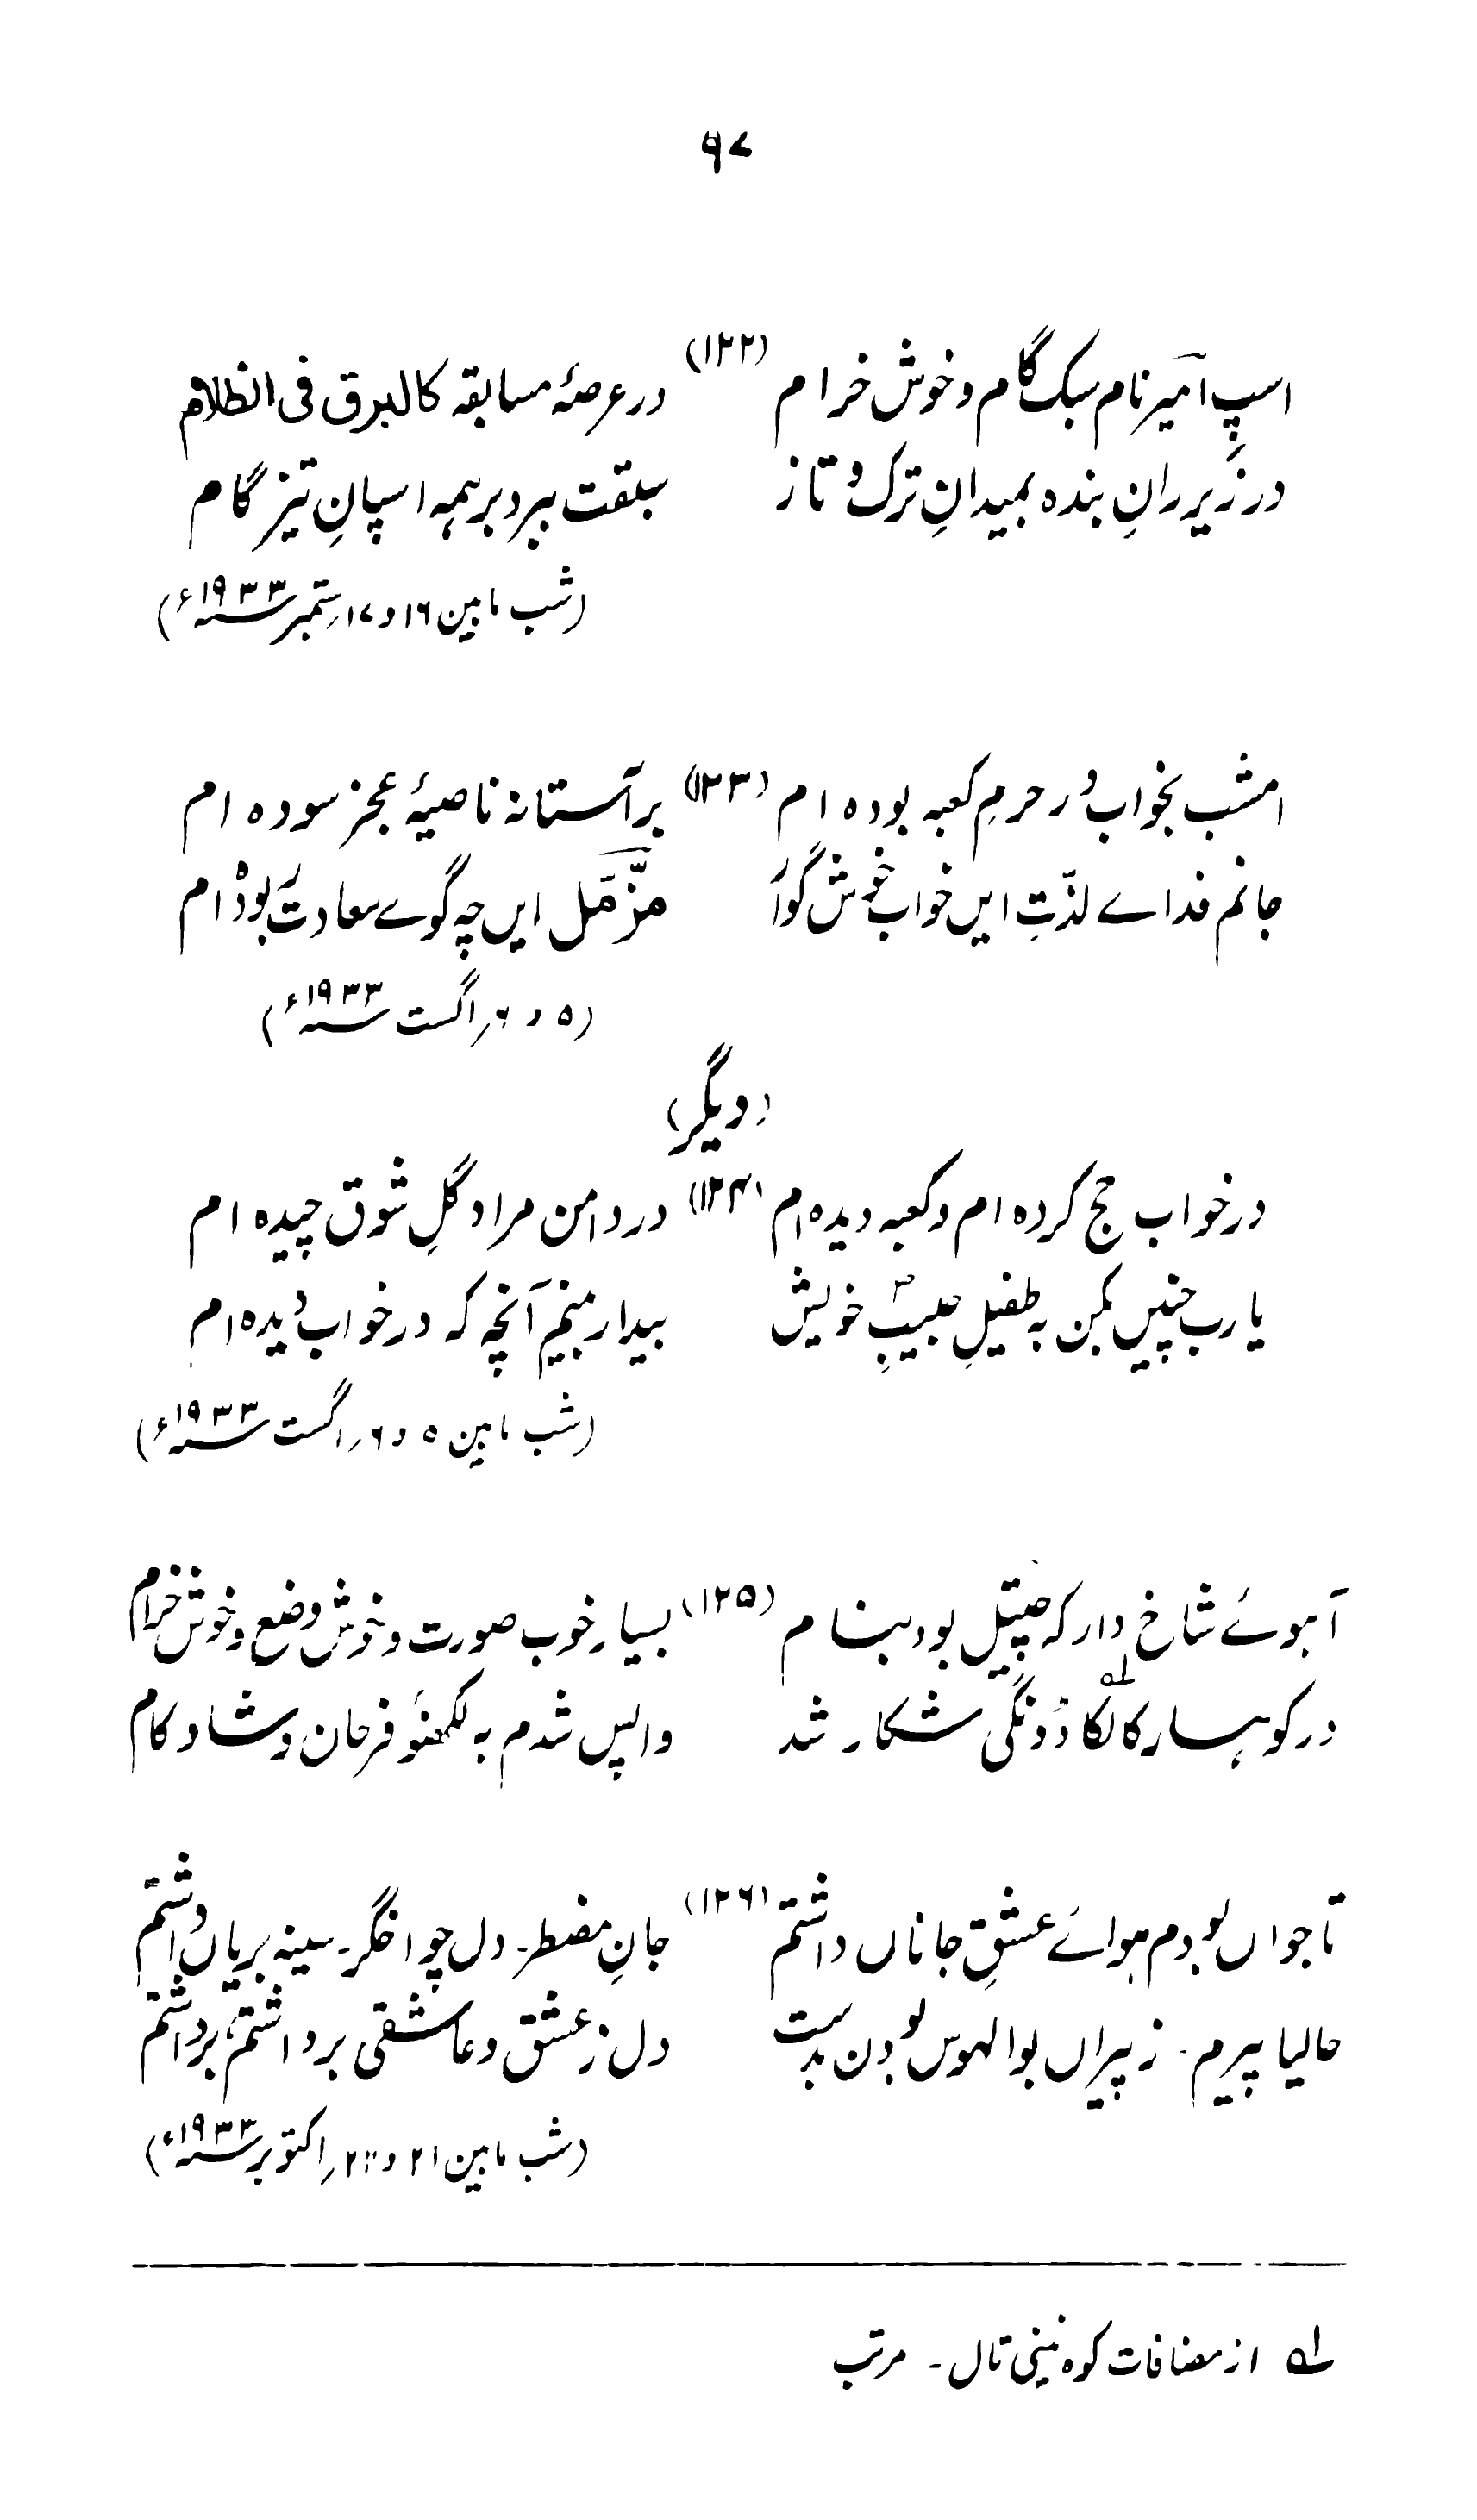 ۹۷
اسپِ امیر نام سبک گام و خوش خرام (۱۲۲) در عرصۂ مسابقہ کالبرق فی الظلام
در زیرِ رانِ بندہ بمیدانِ ترک و تاز سبقت ببرد بر ہمہ اسپانِ تیز گام
(شب مابین ۱۶ و ۱۷ ستمبر ۱۹۳۳ء)
امشب بخواب در حرمِ کعبہ بودہ ام (۱۲۳) بر آستانہ ناصیۂ عجز سودہ ام
جانم فداے لذّتِ ایں خوابِ خوش گوار مزّمّل ایں چہ گوے سعادت ربودہ ام
(۵ و ۶ اگست ۱۹۳۳ء)
(دیگر)
در خواب حج کردہ ام و کعبہ دیدہ ام (۱۲۴) در دامن مراد گلِ شوق چیدہ ام
یارب چنیں بکن بہ طفیلِ حبیبِ خویش بیدار بینم آنچہ کہ در خواب دیدہ ام
(شب مابین ۵ و ۶ اگست ۱۹۳۳ء)
آہوئے شاخ دار کہ چیتل بود بنام (۱۲۵) بسیار خوب صورت و خوش وضع و خوش خرام
در کوہسار کالا ڈونگی شکار شد واپس شدم بہ لکھنؤ فرحان و شاد کام
تا جواں بودم ہواے عشقِ جاناں داشتم (۱۲۶) جانِ مضطر۔ دل چو اخگر۔ سینہ بریاں داشتم
حالیا پیریم۔ ز پیراں بوالہوس بودن بدست دل ز عشق و عاشقی برداشتم برداشتم
(شب مابین ۲۱ و ۲۲ اکتوبر ۱۹۳۳ء)
لہ از مضافات کوہ نینی تال۔ مرتب